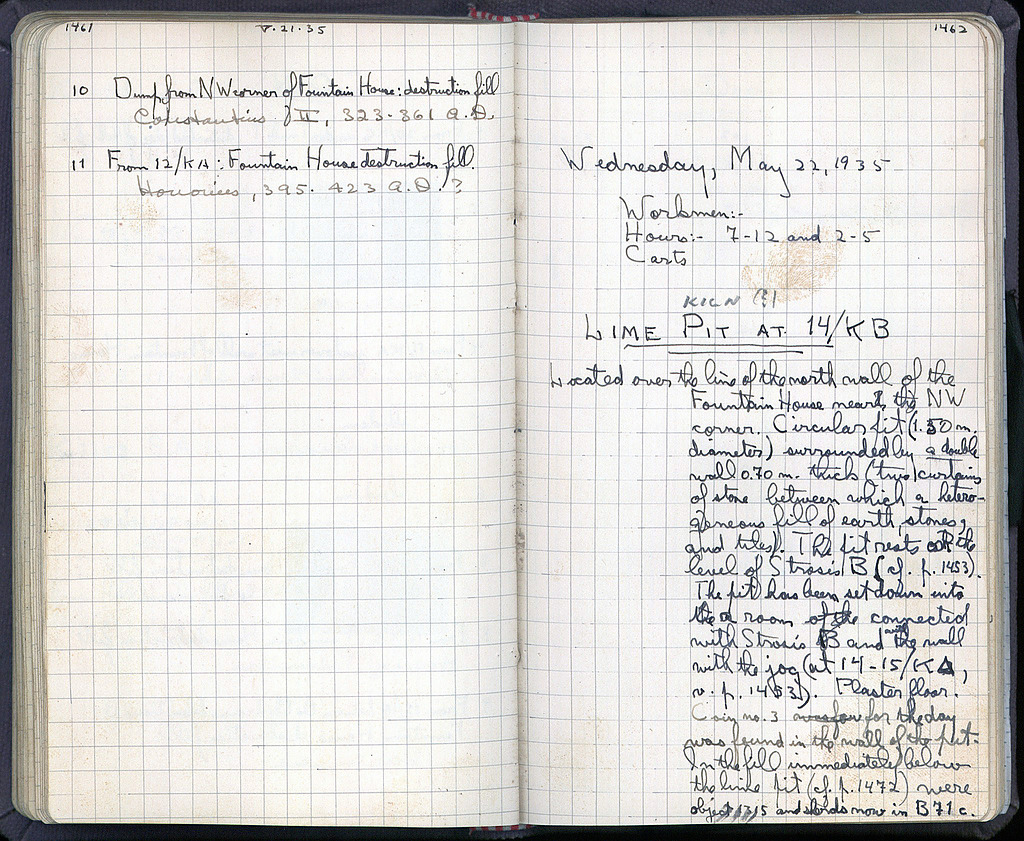 1461
V.21.35
10 Dump from NW corner of Fountain House: destruction fill
Constantius II, 323-361 A.D.
11 From 12/KΔ: Fountain House destruction fill.
Honorius, 395-423 A.D.?
1462
Wednesday, May 22, 1935
Workmen:-
Hours:- 7-12 and 2-5
Carts
KILN
LIME PIT AT 14/KB
Located over the line of the north wall of the
Fountain House near the NW
corner. Circular pit (1.50 m.
diameter) surrounded by a double
wall 0.70 m. thick (two curtains
of stone between which a hetero-
geneous fill of earth, stones,
and tiles). The pit rests on the
level of Strosis B (cf. p. 1453).
The pit has been set down into
a room connected
with Strosis B and with the wall
with the jog (at 14-15/KΔ,
v. p. 1453). Plaster floor.
Coin no. 3 for the day
was found in the wall of the pit.
In the fill immediately below
the lime pit (cf. p. 1472) were
object 15 and sherds now in B 71 c.